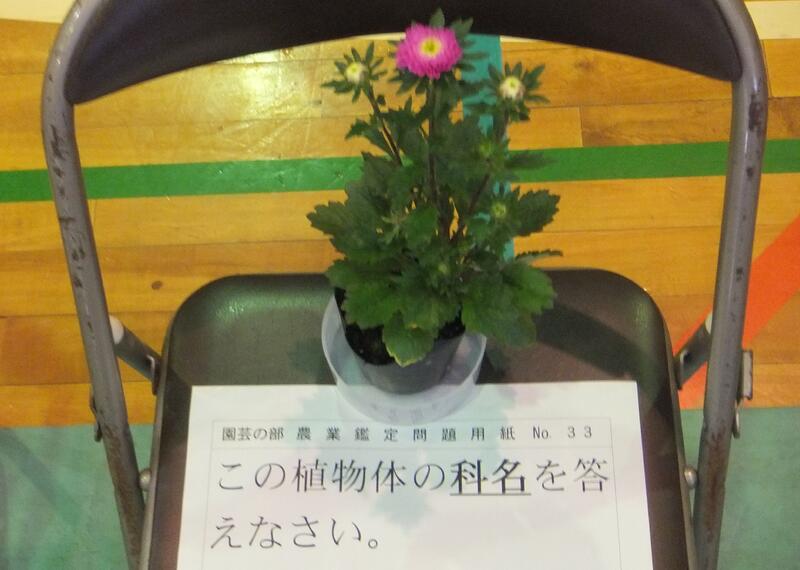 園芸の部 農 業 鑑 定 問 題 用 紙 No. 33
この植物体の科名を答
えなさい。